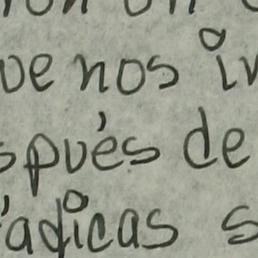 ue nos in
spués de
ádicas s